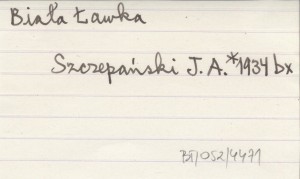 Biała Ławka
Szczepański J. A. *1934 bx
BŁ/052/4471